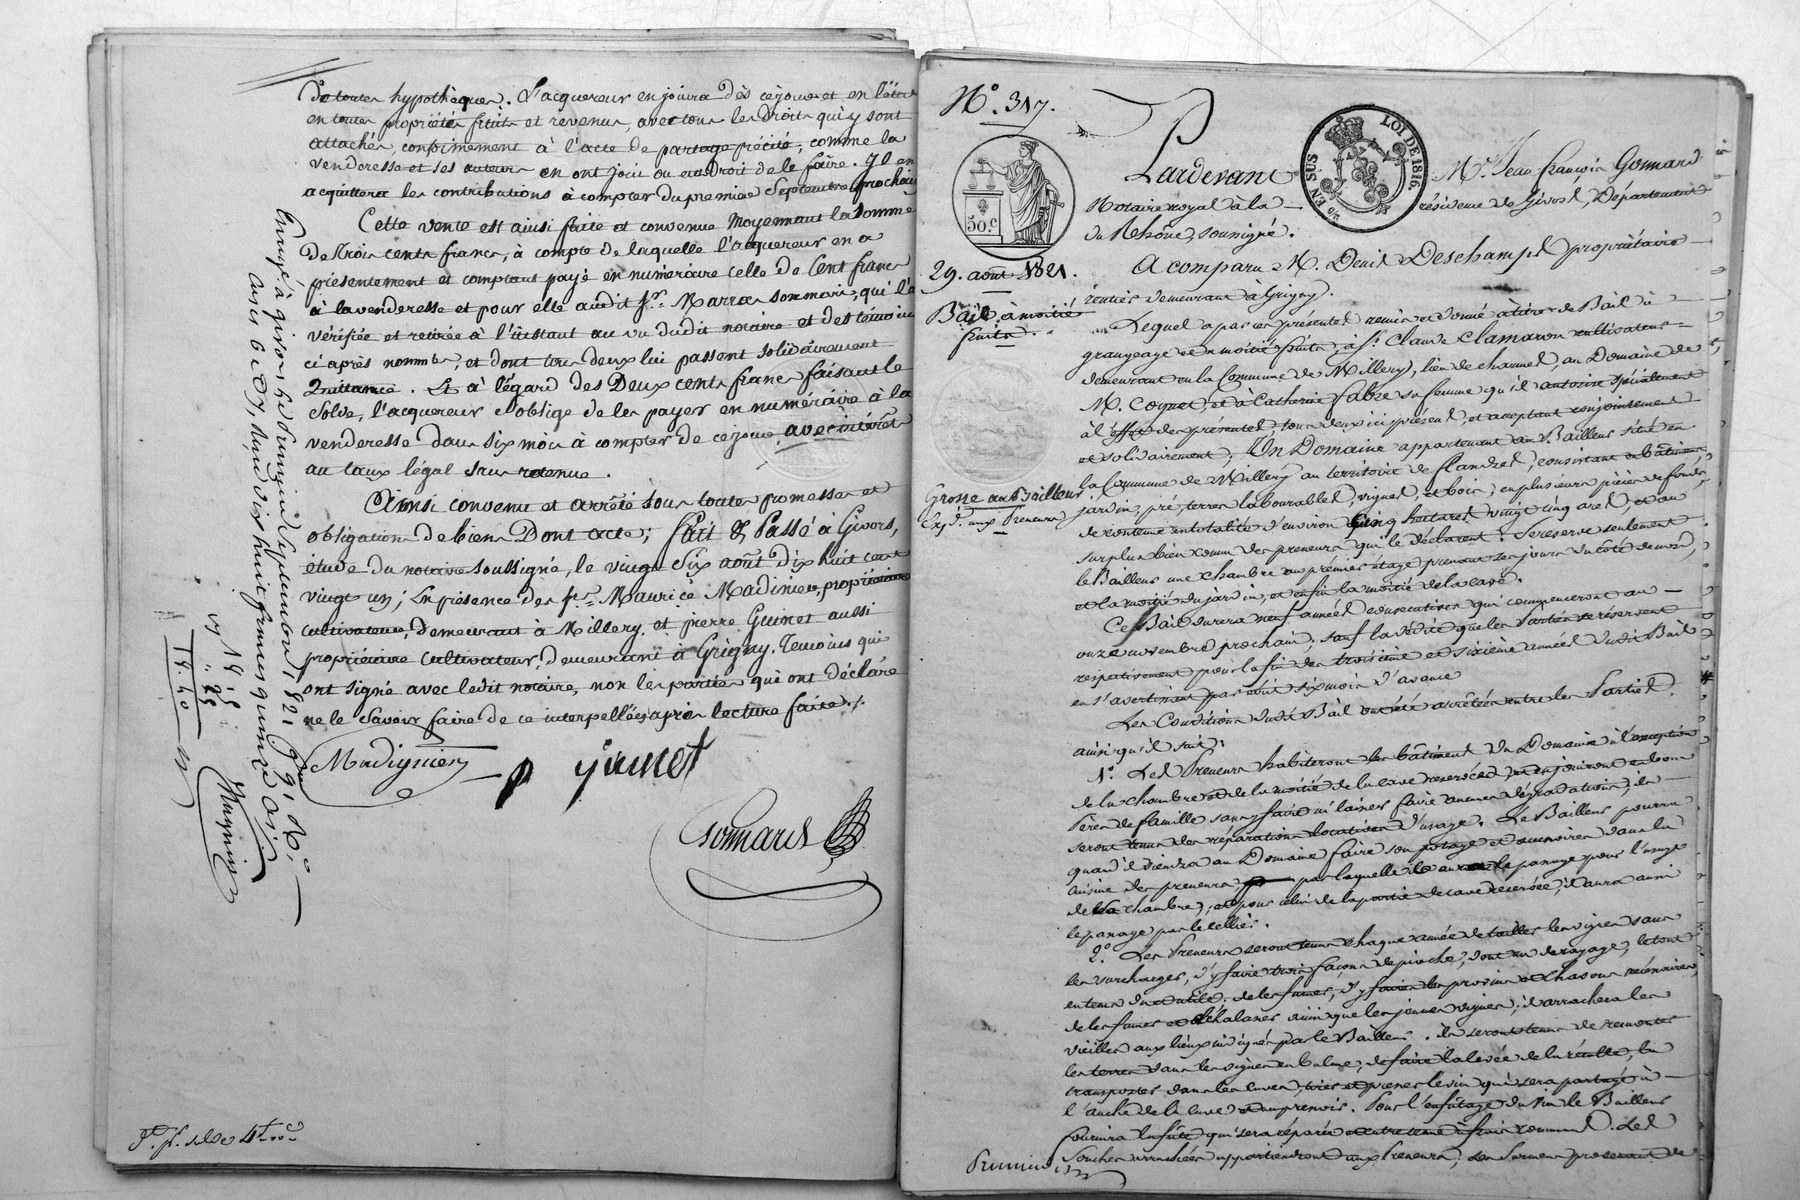 de toutes hypothèques. L'acquereur en jouira dès ce jour et en l'état
en toutes propriétés fruits et revenus, avec tous les droits qui y sont
attachés, conformément à l'acte de partage précité, comme la
venderesse et ses auteurs en ont joui ou eu droit de le faire. Il en
acquittera les contributions à compter du premier Septembre prochain
Cette vente est ainsi faite et convenue moyennant la somme
de trois cents francs, à compte de laquelle l'acquereur en a
présentement et comptant payé en numéraire celle de Cent francs
à la venderesse et pour elle audit Sr. Marras sommaire, qui l'a
vérifiée et retirée à l'instant au vu dudit notaire et des témoins
ci après nommés, et dont tous deux lui passent solidairement
Quittance. Et à l'égard des Deux cents francs faisant le
solde, l'acquereur s'oblige de les payer en numéraire à la
venderesse dans six mois à compter de ce jour avec intérêts
au taux légal sans retenue.
Ainsi convenu et arrêté sous toutes promesses et
obligations de biens Dont acte; fait & Passé à Givors,
étude du notaire soussigné, le vingt Six août dix huit cent
vingt un; En présence des srs. Maurice Madinier, propriétaire
cultivateur, demeurant à Millery, et pierre Guinet aussi
propriétaire cultivateur, demeurant à Grigny. Temoins qui
ont signé avec ledit notaire, non les parties qui ont déclaré
ne le savoir faire de ce interpellées après lecture faite ./.
Madignier p guinet
Gonnard
Enregé à givors, le premier Septembre 1821 fo 91, Vo, Co
18.40
N°. 317.
50.c
29. août 1821.
Bail à moitié
fruits.
Grosse au Bailleur
Expd. aux Preneurs
EN SUS LOI DE 1816.
Pardevant Mre. Jean françois Gonnard
Notaire royal à la résidence de Givors, Département
du Rhône, soussigné.
A comparu M. Denis Deschamps propriétaire
rentier demeurant à Grigny.
Lequel a par ces présentes remis et donné à titre de Bail à
grangeage et à moitié fruits, à Sr. Claude Clamaron cultivateur
demeurant en la Commune de Millery, lieu de charmes, au Domaine de
M. Coignet, et à Catherine Fabre sa femme qu'il autorise spécialement
à l'effet des présentes, tous deux ici présens, et acceptant conjointement
et solidairement, Un Domaine appartenant au Bailleur situé en
la Commune de Millery au territoire de flandres, consistant en bâtimens
jardin, pré, terres labourables, vignes, et bois, en plusieurs pièces de fonds,
de contenue en totalité d'environ Cinq hectares vingt cinq ares, et au
surplus bien connu des preneurs qui le déclarent. Se réserve seulement
le Bailleur une chambre au premier étage prenant ses jours du côté de nord,
et la moitié du jardin, et enfin la moitié de la cave.
Ce Bail durera neuf années consécutives qui commenceront au
onze novembre prochain, sauf la dédite que les Parties se réservent
respectivement pour la fin des troisième et sixième années dudit Bail
en s'avertissant par écrit six mois d'avance
Les Conditions dudit Bail ont été arrêtées entre les Parties
ainsi qu'il suit:
1°. Les Preneurs habiteront les bâtimens du Domaine à l'exception
de la chambre et de la moitié de la cave réservées, et en jouiront en bons
Pères de famille sans y faire ni laisser faire aucunes dégradations, ils
seront tenus des réparations locatives d'usage. Le Bailleur pourra
quand il viendra au Domaine faire son potage et accessoires dans la
cuisine des preneurs, par laquelle il aura le passage pour l'usage
de la chambre, et pour celui de la partie de cave réservée, il aura aussi
le passage par le cellier.
2°. Les Preneurs seront tenus chaque année de tailler les vignes sans
les surcharger, d'y faire trois façons de pioche, dont une de rayage, le tout
en tems du et utile, de les fumer, d'y faire les provins et chapons nécessaires,
de les fumer et échalasser ainsi que les jeunes vignes, d'arracher les
vieilles aux lieux indiqués par le Bailleur. ils seront tenus de remonter
les terres dans les vignes en balme, de faire la levée de la récolte, la
transporter dans les cuves, tirer et presser le vin qui sera partagé à
l'anche de la cuve et du pressoir. Pour l'enfûtage du vin le Bailleur
fournira la fûte qui sera réparée et entretenue à frais communs. Les
souches arrachées appartiendront aux Preneurs, les sarmens provenant de